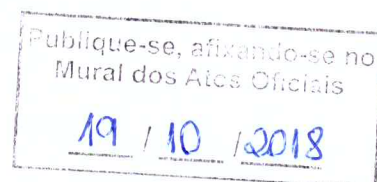 Publique-se, afixando-se no
Mural dos Atos Oficiais
19 / 10 / 2018